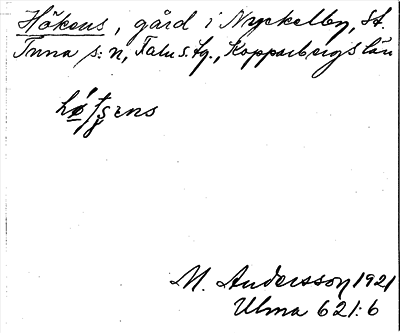 Hökens, gård i Nyckelby, St.
Tuna s:n, Falu s. tg., Kopparbergs län
M. Andersson 1921
Ulma 621:6